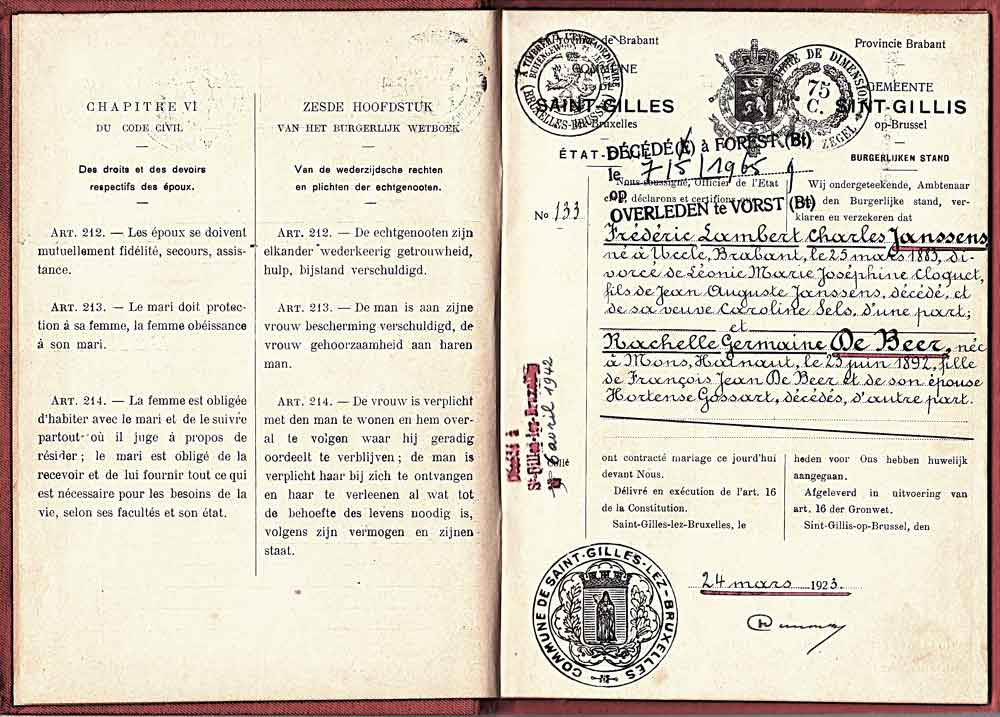 CHAPITRE VI
DU CODE CIVIL
Des droits et des devoirs
respectifs des époux.
ART. 212. — Les époux se doivent
mutuellement fidélité, secours, assis-
tance.
ART. 213. — Le mari doit protec-
tion à sa femme, la femme obéissance
à son mari.
ART. 214. — La femme est obligée
d'habiter avec le mari et de le suivre
partout où il juge à propos de
résider ; le mari est obligé de la
recevoir et de lui fournir tout ce qui
est nécessaire pour les besoins de la
vie, selon ses facultés et son état.
ZESDE HOOFDSTUK
VAN HET BURGERLIJK WETBOEK
Van de wederzijdsche rechten
en plichten der echtgenooten.
ART. 212. — De echtgenooten zijn
elkander wederkeerig getrouwheid,
hulp, bijstand verschuldigd.
ART. 213. — De man is aan zijne
vrouw bescherming verschuldigd, de
vrouw gehoorzaamheid aan haren
man.
ART. 214. — De vrouw is verplicht
met den man te wonen en hem over-
al te volgen waar hij geradig
oordeelt te verblijven ; de man is
verplicht haar bij zich te ontvangen
en haar te verleenen al wat tot
de behoefte des levens noodig is,
volgens zijn vermogen en zijnen
staat.
Province de Brabant
COMMUNE
DE
SAINT-GILLES
Bruxelles
ÉTAT-
Provincie Brabant
GEMEENTE
SINT-GILLIS
op-Brussel
BURGERLIJKEN STAND
TIMBRE DE DIMENSION
75
C.
ZEGEL
DÉCÉDÉ(E) à FOREST (Bt)
le 7/5/1965
op
OVERLEDEN te VORST (Bt)
Nous soussigné, Officier de l'Etat
déclarons et certifions que
Wij ondergeteekende, Ambtenaar
den Burgerlijke stand, ver-
klaren en verzekeren dat
No 133
Frédéric Lambert Charles Janssens
né à Uccle, Brabant, le 25 mars 1883, di-
vorcé de Léonie Marie Joséphine Cloquet,
fils de Jean Auguste Janssens, décédé, et
de sa veuve Caroline Sels, d'une part;
et
Rachelle Germaine De Beer, née
à Mons, Hainaut, le 25 juin 1892, fille
de François Jean De Beer et de son épouse
Hortense Gossart, décédés, d'autre part.
St-Gilles-lez-Bruxelles
avril 1942
ont contracté mariage ce jourd'hui
devant Nous.
Délivré en exécution de l'art. 16
de la Constitution.
Saint-Gilles-lez-Bruxelles, le
heden voor Ons hebben huwelijk
aangegaan.
Afgeleverd in uitvoering van
art. 16 der Gronwet.
Sint-Gillis-op-Brussel, den
24 mars 1923.
COMMUNE DE SAINT-GILLES-LEZ-BRUXELLES